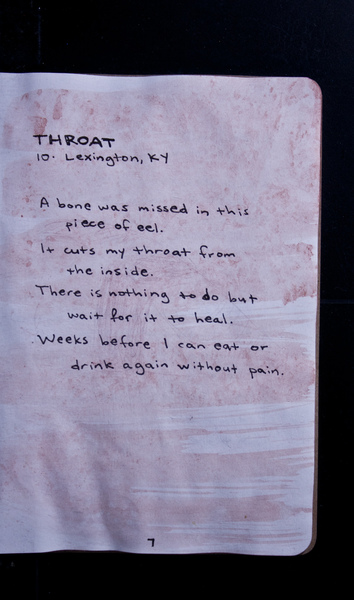 THROAT
10. Lexington, KY
A bone was missed in this
piece of eel.
It cuts my throat from
the inside.
There is nothing to do but
wait for it to heal.
Weeks before I can eat or
drink again without pain.
7